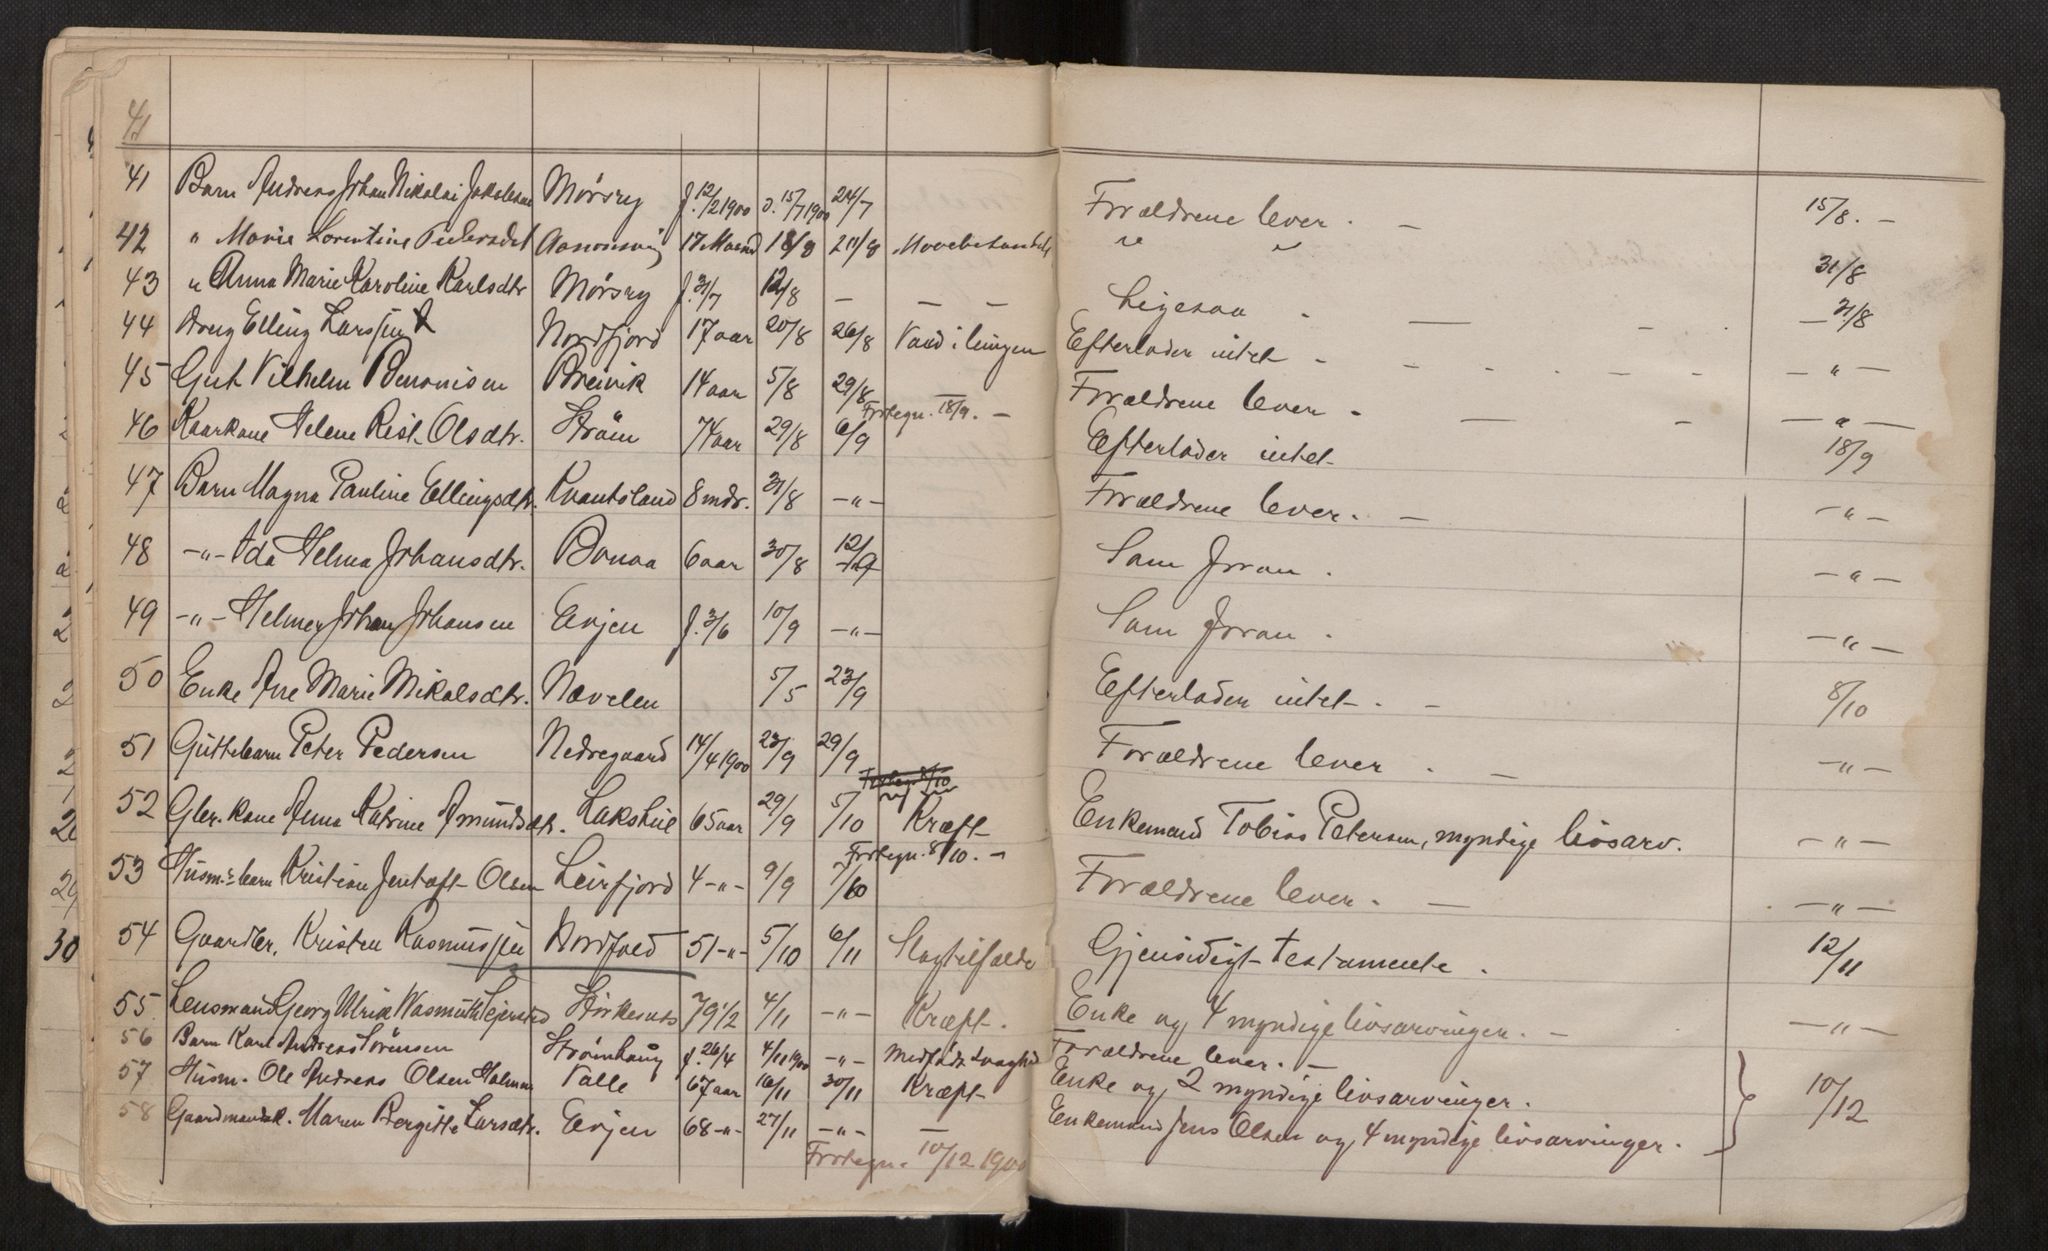 41
41 Barn Andreas Johan Nikolai Jakobsen Mørsry f. 12/2 1900 d. 15/7 1900 24/7 Forældrene lever. — 15/8. —
42 " Marie Lorentine Pedersdt 17 Maaned 18/8 20/8 " "
43 " Anna Marie Karoline Karlsdtr Mørsry f. 31/7 12/8 — — — Ligesaa - 31/8
44 Dreng Elling Larssen Nordfjord 17 aar 20/8 26/8 Vand i lungen Efterlader intet - — 31/8
45 Gut Vilhelm Benonisen Breivik 14 aar 5/8 29/8 Forældrene lever - — " —
Fortegn. 18/9. —
46 Kaarkone Helene Rist. Olsdtr. Strøm 74 aar 29/8 6/9 Efterlader intet- 18/9
47 Barn Magna Pauline Ellingsdtr. Kvantoland 8 mdr. 31/8 -"- Forældrene lever. — -"-
48 -"- Ida Helma Johansdtr. Bonaa 6 aar 30/8 12/9 Som foran. -"-
49 -"- Helmer Johan Johansen Evjen f. 3/6 10/9 -"- Som foran. -"-
50 Enke Ane Marie Mikalsdtr. Nævelen 5/5 23/9 Efterlader intet-. - 8/10
51 Guttebarn Peter Pedersen Nedregaard 14/4 1900 23/9 29/9 Forældrene lever. — -"-
Fortegn 8/10
52 Gbr. kone Anna Katrine Amundsdtr. Lakshul 65 aar 29/9 5/10 Kræft- Enkemand Tobias Petersen, myndige livsarv. -"-
Fortegn. 8/10. —
53 Husm.s barn Kristian Jentoft Olsen Leirfjord 4 -"- 9/9 7/10 Forældrene lever. — -"-
54 Gaardbr. Kristen Rasmussen Nordfold 51 -"- 5/10 6/11 Slagtilfælde Gjensidigt testamente. 12/11
55. Lensmand Georg Ulrik Wasmuth Sejersted Størkesnes 79 1/2 4/11 -"- Kræft-. Enke og 4 myndige livsarvinger. — -"-
56 Barn Karl Andreas Sörensen Strømhaug f. 26/4 4/11 1900 -"- Medfødt svaghed Forældrene lever. —
57 Husm. Ole Andreas Olsen Holman Valle 67 aar 16/11 30/11 Kræft- Enke og 2 myndige livsarvinger. 10/12
58 Gaardmandsk. Maren Bergitte Larsdtr. Evjen 68 -"- 27/11 -"- — Enkemand Jens Olsen og 4 myndige livsarvinger.
Fortegn. 10/12 1900
30